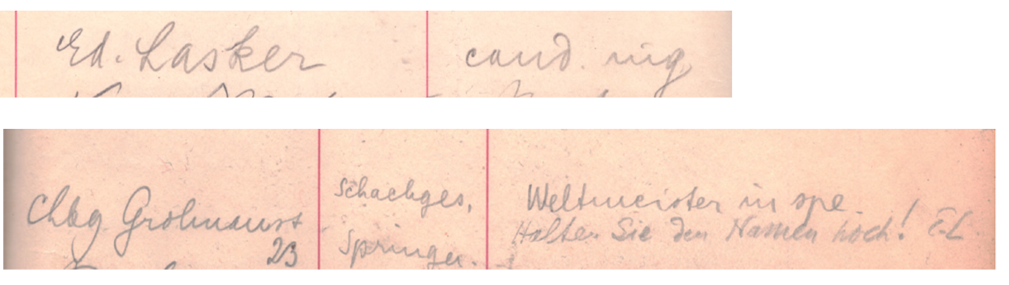 Ed. Lasker cand. ing
Chbg Grolmanstr
23
Schachges,
Springer.
Weltmeister in spe.
Halten Sie den Namen hoch! E.L.